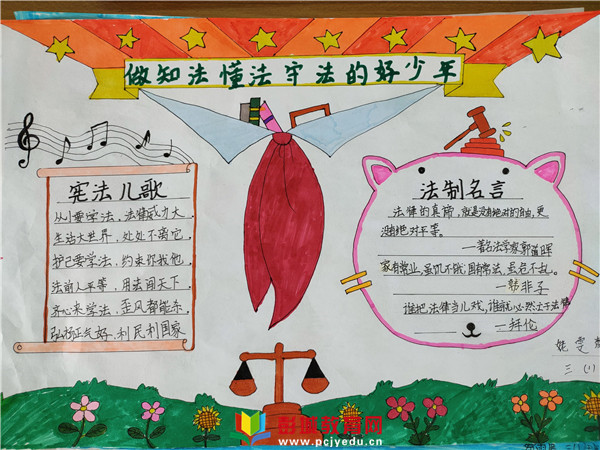 做知法懂法守法的好少年
宪法儿歌
从小要学法，法律威力大
生活大世界，处处不离它，
护己要学法，约束你我他，
法前人平等，用法闯天下
齐心来学法，歪风都能杀，
弘扬正气好，利民利国家
法制名言
法律的真谛，就是没有绝对的自由，更
没有绝对平等。
—著名法学家郭道晖
家有常业，虽饥不饿；国有常法，虽危不亡。
—韩非子
谁把法律当儿戏，谁就必然亡于法律
—拜伦
姚雯
三（1）
彭课教育网
www.pcjyedu.cn